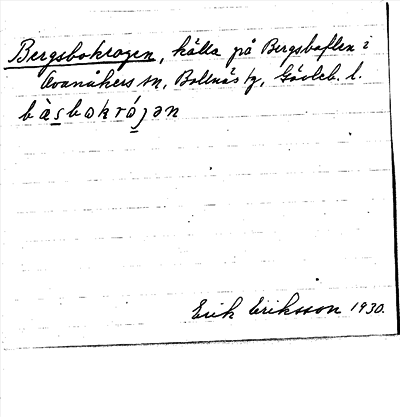 Bergsbokrogen, källa på Bergsboflen i
Ovanåkers sn, Bollnäs tg, Gävleb. l.
bàsbokrójən
Erik Eriksson 1930.